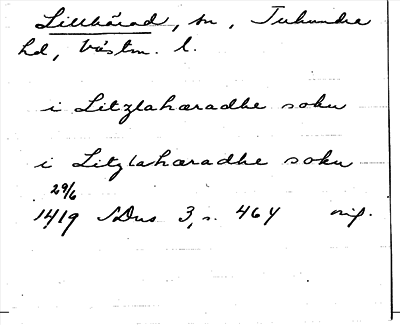 Lillhärad, sn, Tuhundra
hd, Västm. l.
i Litzlahæradhe soku
i Litzlahæradhe soku
29/6
1419 SDns 3, s. 464 orig.